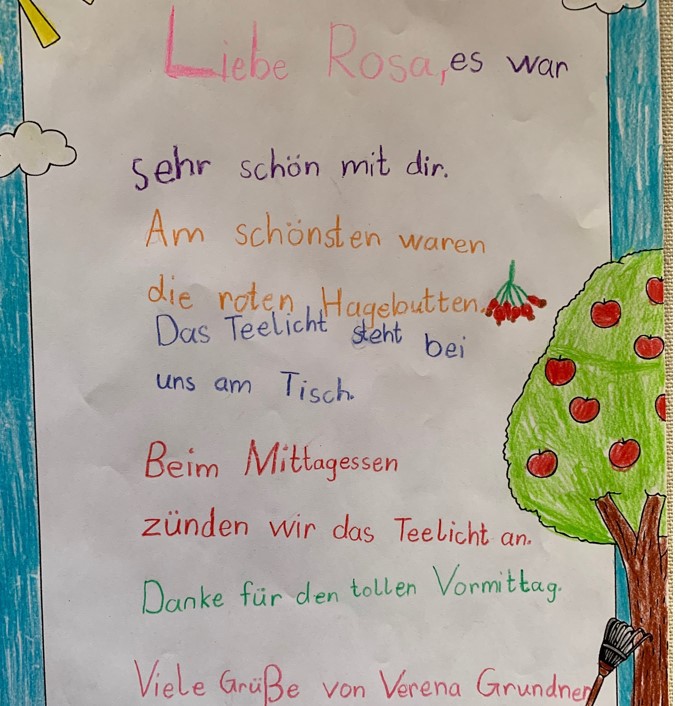 Liebe Rosa, es war
sehr schön mit dir.
Am schönsten waren
die roten Hagebutten.
Das Teelicht steht bei
uns am Tisch.
Beim Mittagessen
zünden wir das Teelicht an.
Danke für den tollen Vormittag.
Viele Grüße von Verena Grundner